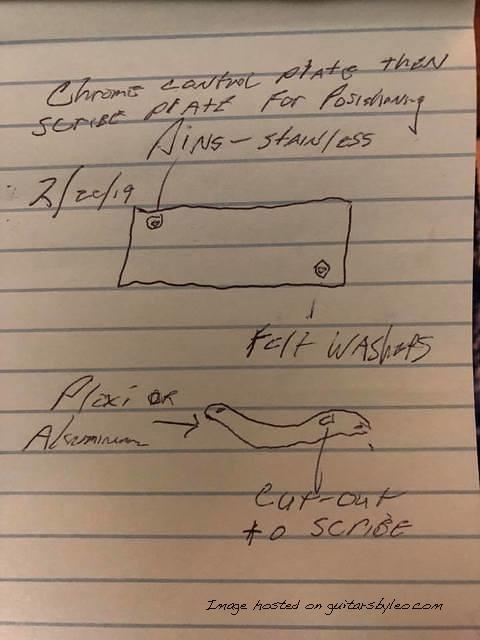 Chrome control plate then
scribe plate for Posishoning
Pins - stainless
2/20/19
Felt washers
Plexi or
Aluminum
Cut-out
to scribe
Image hosted on guitarsbyleo.com